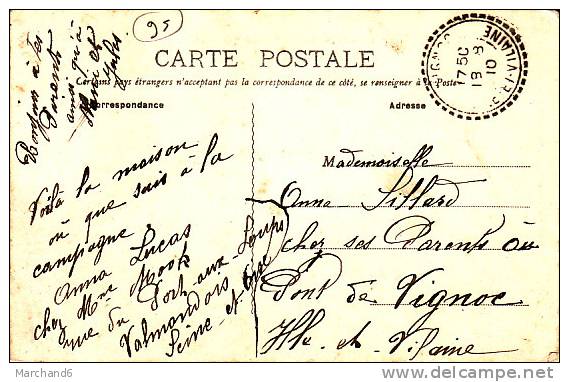 95
CARTE POSTALE
Certains pays étrangers n'acceptant pas la correspondance de ce côté, se renseigner à la Poste
Correspondance
Adresse
17 50
18 - 8
10
VILAINE
Bonjour à tes
Parents
ainsi qu'à
et
Jules
Voilà la maison
où que suis à la
campagne
Anna Lucas
chez Mme Mook
rue du Port-aux-Loups
Valmondois
Seine-et-Oise
Mademoiselle
Anna Sillard
chez ses Parents au
Pont de Vignoc
Ille-et-Vilaine
Marchand6
delcampe.net